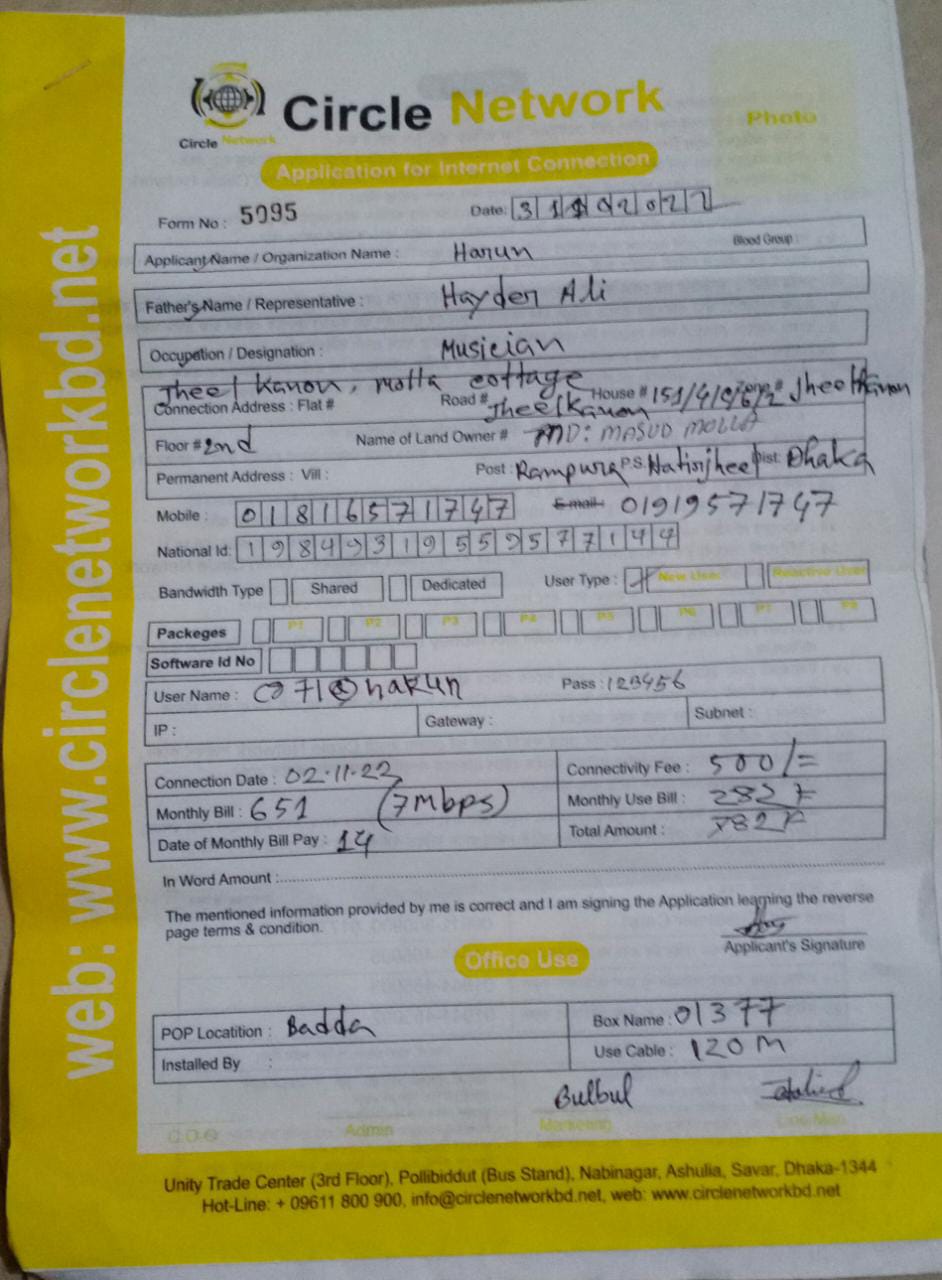 web: www.circlenetworkbd.net
Circle Network
Circle Network
Photo
Application for Internet Connection
Form No : 5095
Date:
Applicant Name / Organization Name : Harun
Blood Group :
Father's Name / Representative : Hayder Ali
Occupation / Designation : Musician
Jheel Kanon, molla cottage
Connection Address : Flat # Road # Jheelkanon House # Jheelkanon
Floor # 2nd Name of Land Owner # MD: MASUD MOLLA
Permanent Address : Vill : Post : Rampura P.S. Hatirjheel Dist: Dhaka
Mobile : 01816571747 Email: 01919571747
National Id: 19849319559577144
Bandwidth Type Shared Dedicated User Type : New User Reactive User
Packeges P1 P2 P3 P4 P5 P6 P7 P8
Software Id No
User Name : Pass : 123456
IP : Gateway : Subnet :
Connection Date : 02-11-22 Connectivity Fee : 500/=
Monthly Bill : 651 (7Mbps) Monthly Use Bill : 282
Date of Monthly Bill Pay : 14 Total Amount : 782
In Word Amount :
The mentioned information provided by me is correct and I am signing the Application learning the reverse
page terms & condition.
Applicant's Signature
Office Use
POP Locatition : Badda Box Name : 01377
Installed By : Use Cable : 120 M
Bulbul
C.O.O Admin Marketing Line Man
Unity Trade Center (3rd Floor), Pollibiddut (Bus Stand), Nabinagar, Ashulia, Savar, Dhaka-1344
Hot-Line: + 09611 800 900, info@circlenetworkbd.net, web: www.circlenetworkbd.net